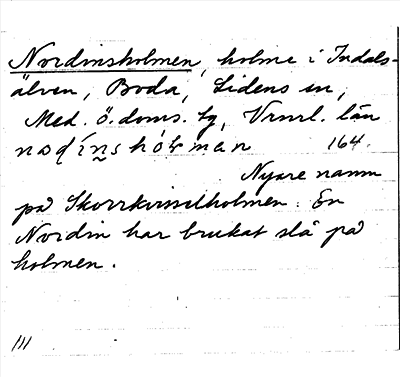 Nordinsholmen, holme i Indals-
älven, Boda, Lidens sn,
Med. ö. doms. tg, Vrnrl. län
164.
Nyare namn
på Skorrkvarnholmen. En
Nordin har brukat slå på
holmen.
111